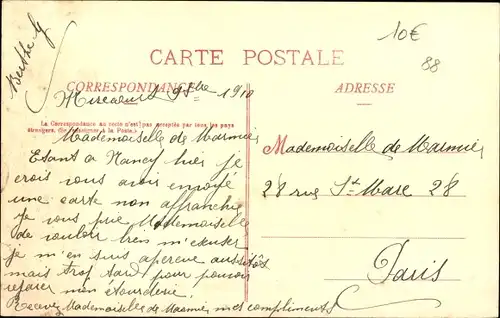 Berthe
10€
88
CARTE POSTALE
CORRESPONDANCE
ADRESSE
Mirecourt 9bre 1910
La Correspondance au recto n'est pas acceptée par tous les pays
étrangers. (Se renseigner à la Poste.)
Mademoiselle de Marmier
Etant a Nancy hier je
crois vous avoir envoyé
une carte non affranchie
Je vous prie Mademoiselle
de vouloir bien m'excuser
je m'en suis aperçue aussitôt
mais trop tard pour pouvoir
réparer mon étourderie.
Recevez Mademoiselle de Marmier mes compliments
Mademoiselle de Marmier
28 rue St Marc 28
Paris